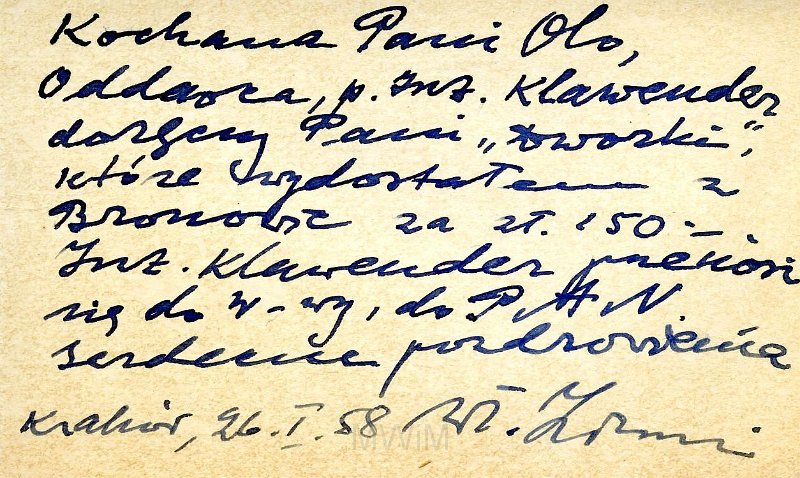 Kochana Pani Olo,
Oddawca, p. Inż. Klawender
doręczy Pani „tworki",
które wydostałem z
Bronowic za zł. 150.-
Inż. Klawender przenosi
się do W-wy, do P.A.N
serdeczne pozdrowienia
Kraków, 26.I.58 Wł.
MWIM